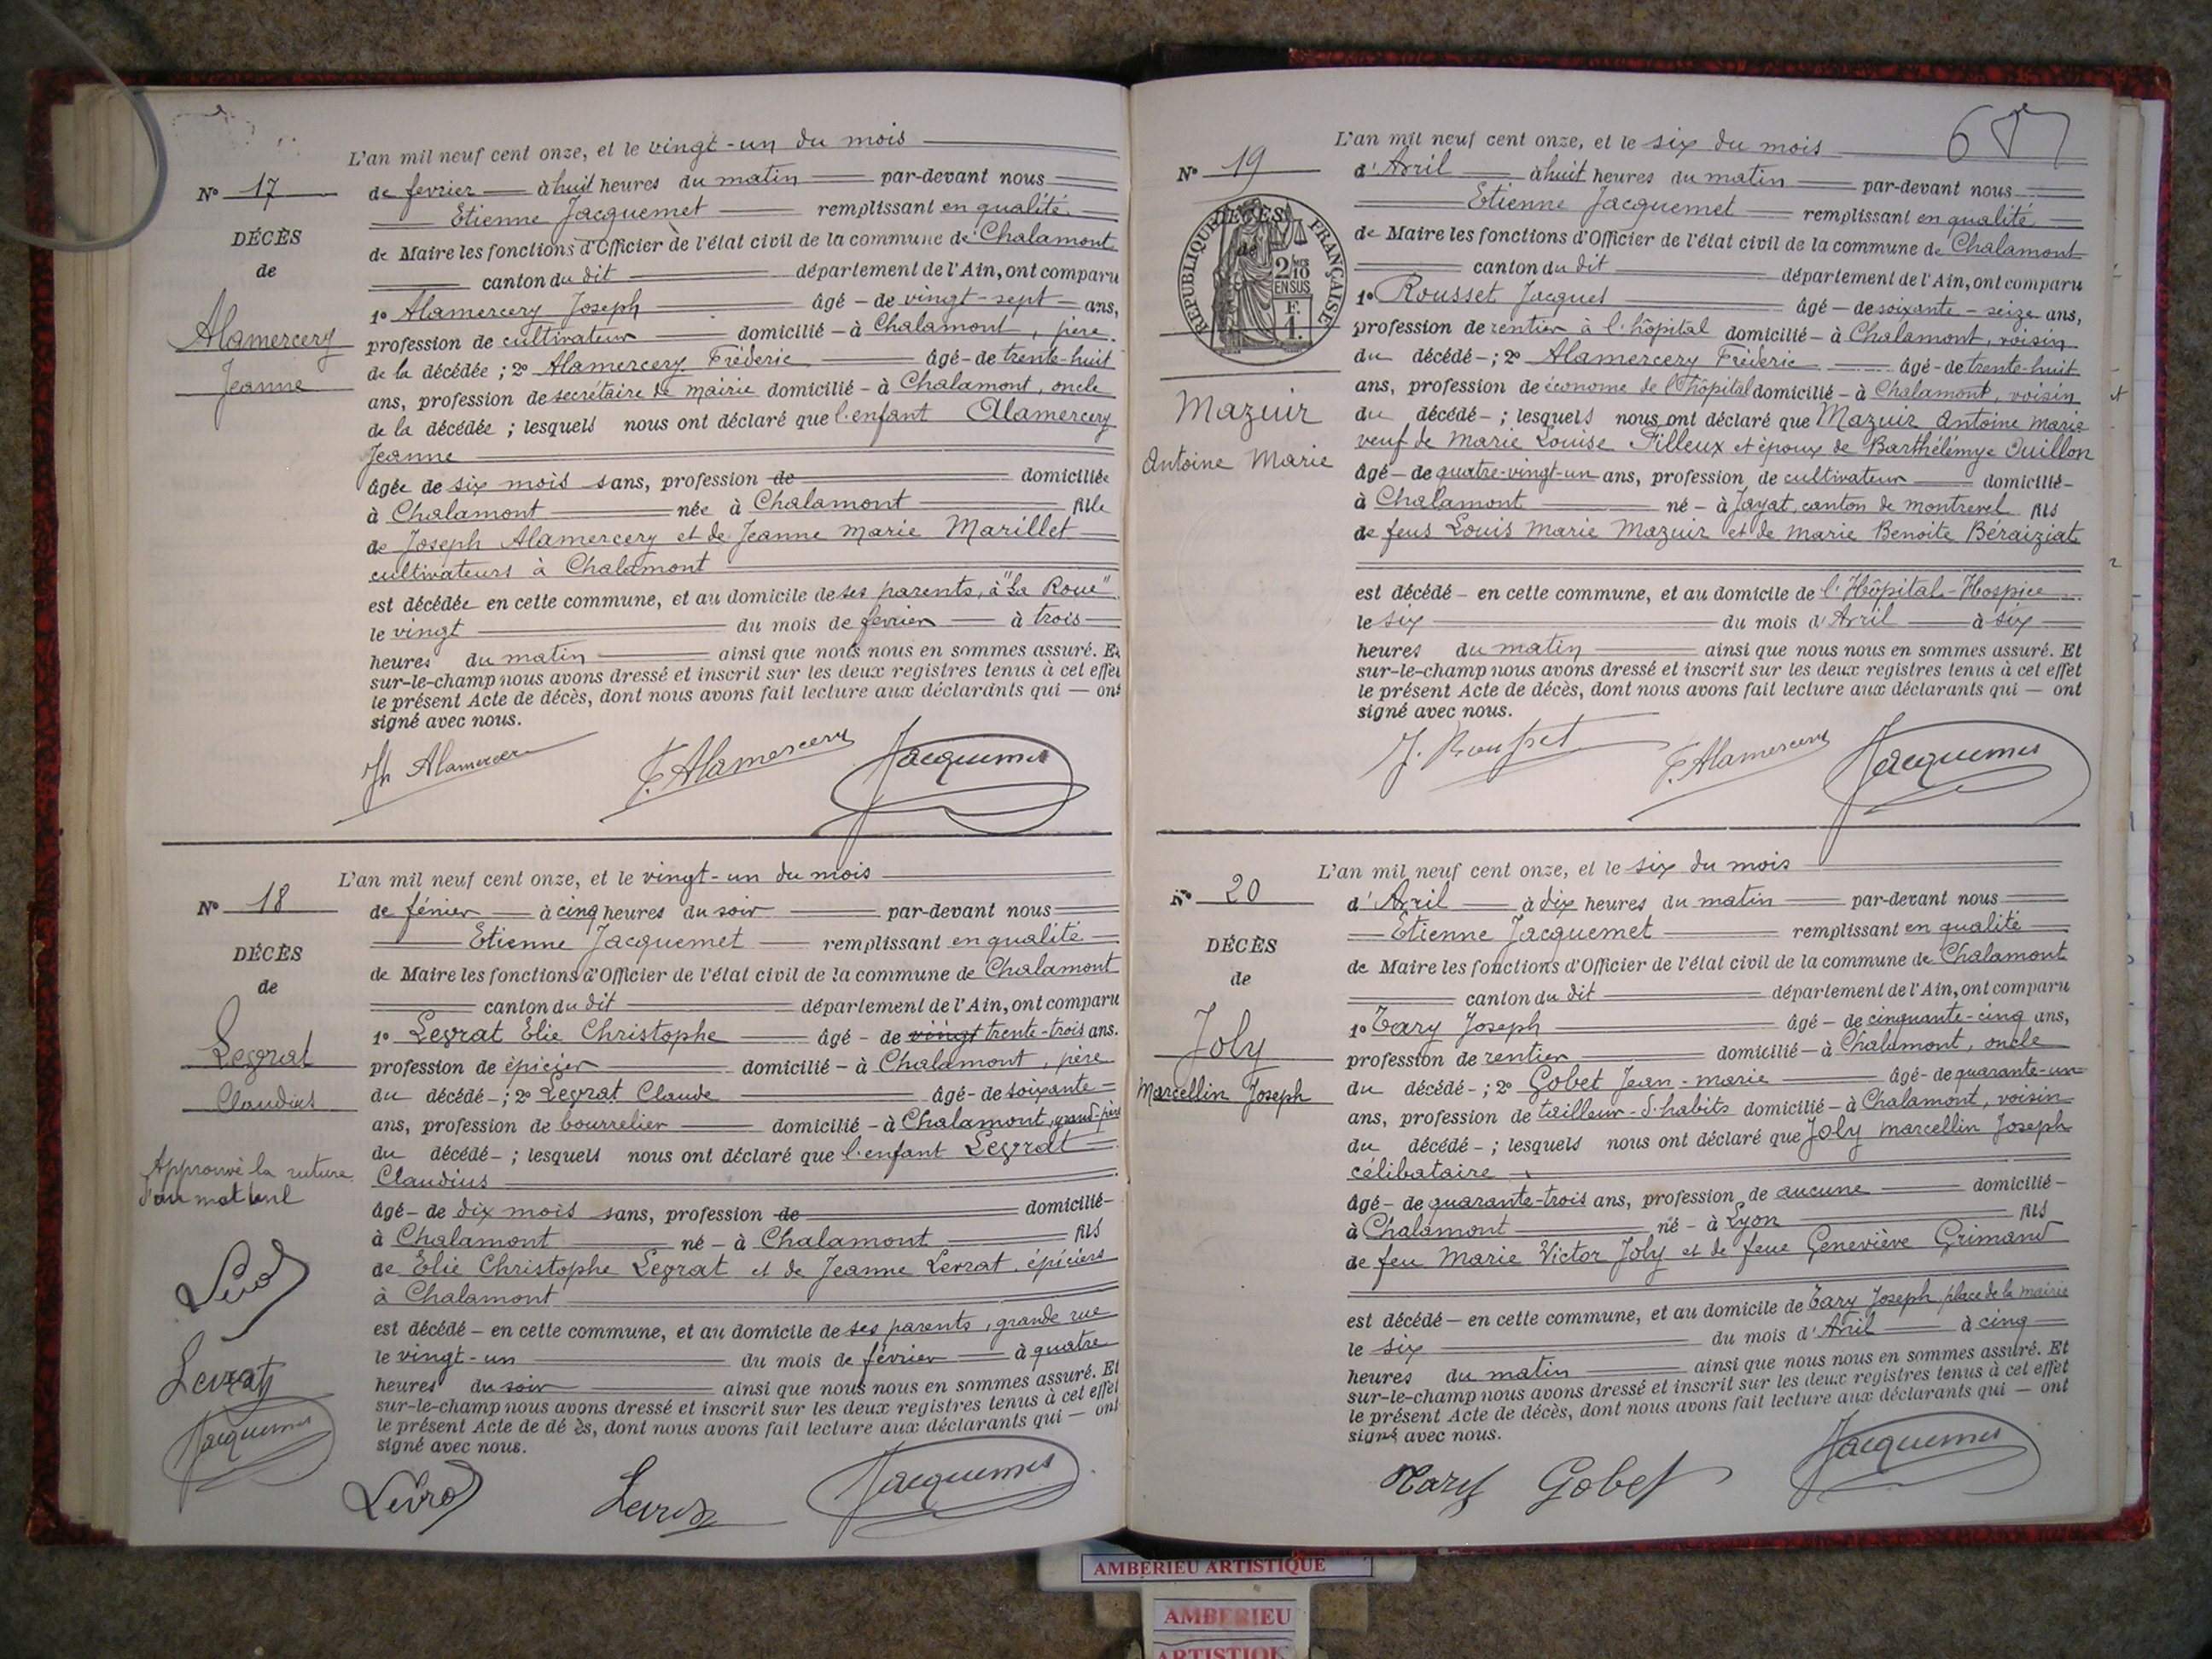 L'an mil neuf cent onze, et le vingt-un du mois
Nº 17
de fevrier à huit heures du matin par-devant nous
Etienne Jacquemet remplissant en qualité
DÉCÈS
de Maire les fonctions d'Officier de l'état civil de la commune de Chalamont
de
canton du dit département de l'Ain, ont comparu
1º Alamercery Joseph âgé de vingt-sept ans,
Alamercery
profession de cultivateur domicilié à Chalamont, père
Jeanne
de la décédée ; 2º Alamercery Fréderic âgé de trente-huit
ans, profession de secrétaire de mairie domicilié à Chalamont, oncle
de la décédée ; lesquels nous ont déclaré que l'enfant Alamercery
Jeanne
âgée de six mois sans, profession de domiciliée
à Chalamont née à Chalamont fille
de Joseph Alamercery et de Jeanne Marie Marillet
cultivateurs à Chalamont
est décédée en cette commune, et au domicile de ses parents, à "La Roue"
le vingt du mois de février à trois
heures du matin ainsi que nous nous en sommes assuré. Et
sur-le-champ nous avons dressé et inscrit sur les deux registres tenus à cet effet
le présent Acte de décès, dont nous avons fait lecture aux déclarants qui — ont
signé avec nous.
Jh Alamercery F. Alamercery Jacquemet
L'an mil neuf cent onze, et le vingt-un du mois
Nº 18
de février à cinq heures du soir par-devant nous
Etienne Jacquemet remplissant en qualité
DÉCÈS
de Maire les fonctions d'Officier de l'état civil de la commune de Chalamont
de
canton du dit département de l'Ain, ont comparu
1º Levrat Elie Christophe âgé - de vingt trente-trois ans.
Levrat
profession de épicier domicilié - à Chalamont, père
Claudius
du décédé - ; 2º Levrat Claude âgé - de soixante
ans, profession de bourrelier domicilié - à Chalamont, grand-père
du décédé - ; lesquels nous ont déclaré que l'enfant Levrat
Approuvé la rature
Claudius
d'un mot nul
âgé - de dix mois sans, profession de domicilié -
à Chalamont né - à Chalamont fils
de Elie Christophe Levrat et de Jeanne Levrat, épiciers
à Chalamont
est décédé - en cette commune, et au domicile de ses parents, grande rue
le vingt-un du mois de février à quatre
heures du soir ainsi que nous nous en sommes assuré. Et
sur-le-champ nous avons dressé et inscrit sur les deux registres tenus à cet effet
le présent Acte de dé ès, dont nous avons fait lecture aux déclarants qui — ont
signé avec nous.
Levrat
Levrat
Jacquemet
Levrat Levrat Jacquemet
L'an mil neuf cent onze, et le six du mois
Nº 19
d'Avril à huit heures du matin par-devant nous
Etienne Jacquemet remplissant en qualité
RÉPUBLIQUE FRANÇAISE
DÉCÈS
de
2/10 EN SUS
de Maire les fonctions d'Officier de l'état civil de la commune de Chalamont
canton du dit département de l'Ain, ont comparu
1º Rousset Jacques âgé - de soixante-seize ans,
profession de rentier à l'hôpital domicilié - à Chalamont, voisin
du décédé - ; 2º Alamercery Fréderic âgé - de trente-huit
ans, profession de économe de l'hôpital domicilié - à Chalamont, voisin
Mazuir
du décédé - ; lesquels nous ont déclaré que Mazuir Antoine Marie
Antoine Marie
veuf de Marie Louise Filleux et époux de Barthélémye Quillon
âgé - de quatre-vingt-un ans, profession de cultivateur domicilié -
à Chalamont né - à Jayat, canton de Montrevel fils
de feus Louis Marie Mazuir et de Marie Benoite Béraiziat
est décédé - en cette commune, et au domicile de l'Hôpital-Hospice
le six du mois d'Avril à six
heures du matin ainsi que nous nous en sommes assuré. Et
sur-le-champ nous avons dressé et inscrit sur les deux registres tenus à cet effet
le présent Acte de décès, dont nous avons fait lecture aux déclarants qui — ont
signé avec nous.
J. Rousset F. Alamercery Jacquemet
L'an mil neuf cent onze, et le six du mois
Nº 20
d'Avril à dix heures du matin par-devant nous
Etienne Jacquemet remplissant en qualité
DÉCÈS
de Maire les fonctions d'Officier de l'état civil de la commune de Chalamont
de
canton du dit département de l'Ain, ont comparu
1º Tary Joseph âgé - de cinquante-cinq ans,
Joly
profession de rentier domicilié - à Chalamont, oncle
Marcellin Joseph
du décédé - ; 2º Gobet Jean-Marie âgé - de quarante-un
ans, profession de tailleur-d'habits domicilié - à Chalamont, voisin
du décédé - ; lesquels nous ont déclaré que Joly Marcellin Joseph
célibataire
âgé - de quarante-trois ans, profession de aucune domicilié -
à Chalamont né - à Lyon fils
de feu Marie Victor Joly et de feue Geneviève Grimand
est décédé - en cette commune, et au domicile de Tary Joseph place de la mairie
le six du mois d'Avril à cinq
heures du matin ainsi que nous nous en sommes assuré. Et
sur-le-champ nous avons dressé et inscrit sur les deux registres tenus à cet effet
le présent Acte de décès, dont nous avons fait lecture aux déclarants qui — ont
signé avec nous.
Tary Gobet Jacquemet
AMBERIEU ARTISTIQUE
AMBERIEU
ARTISTIQUE